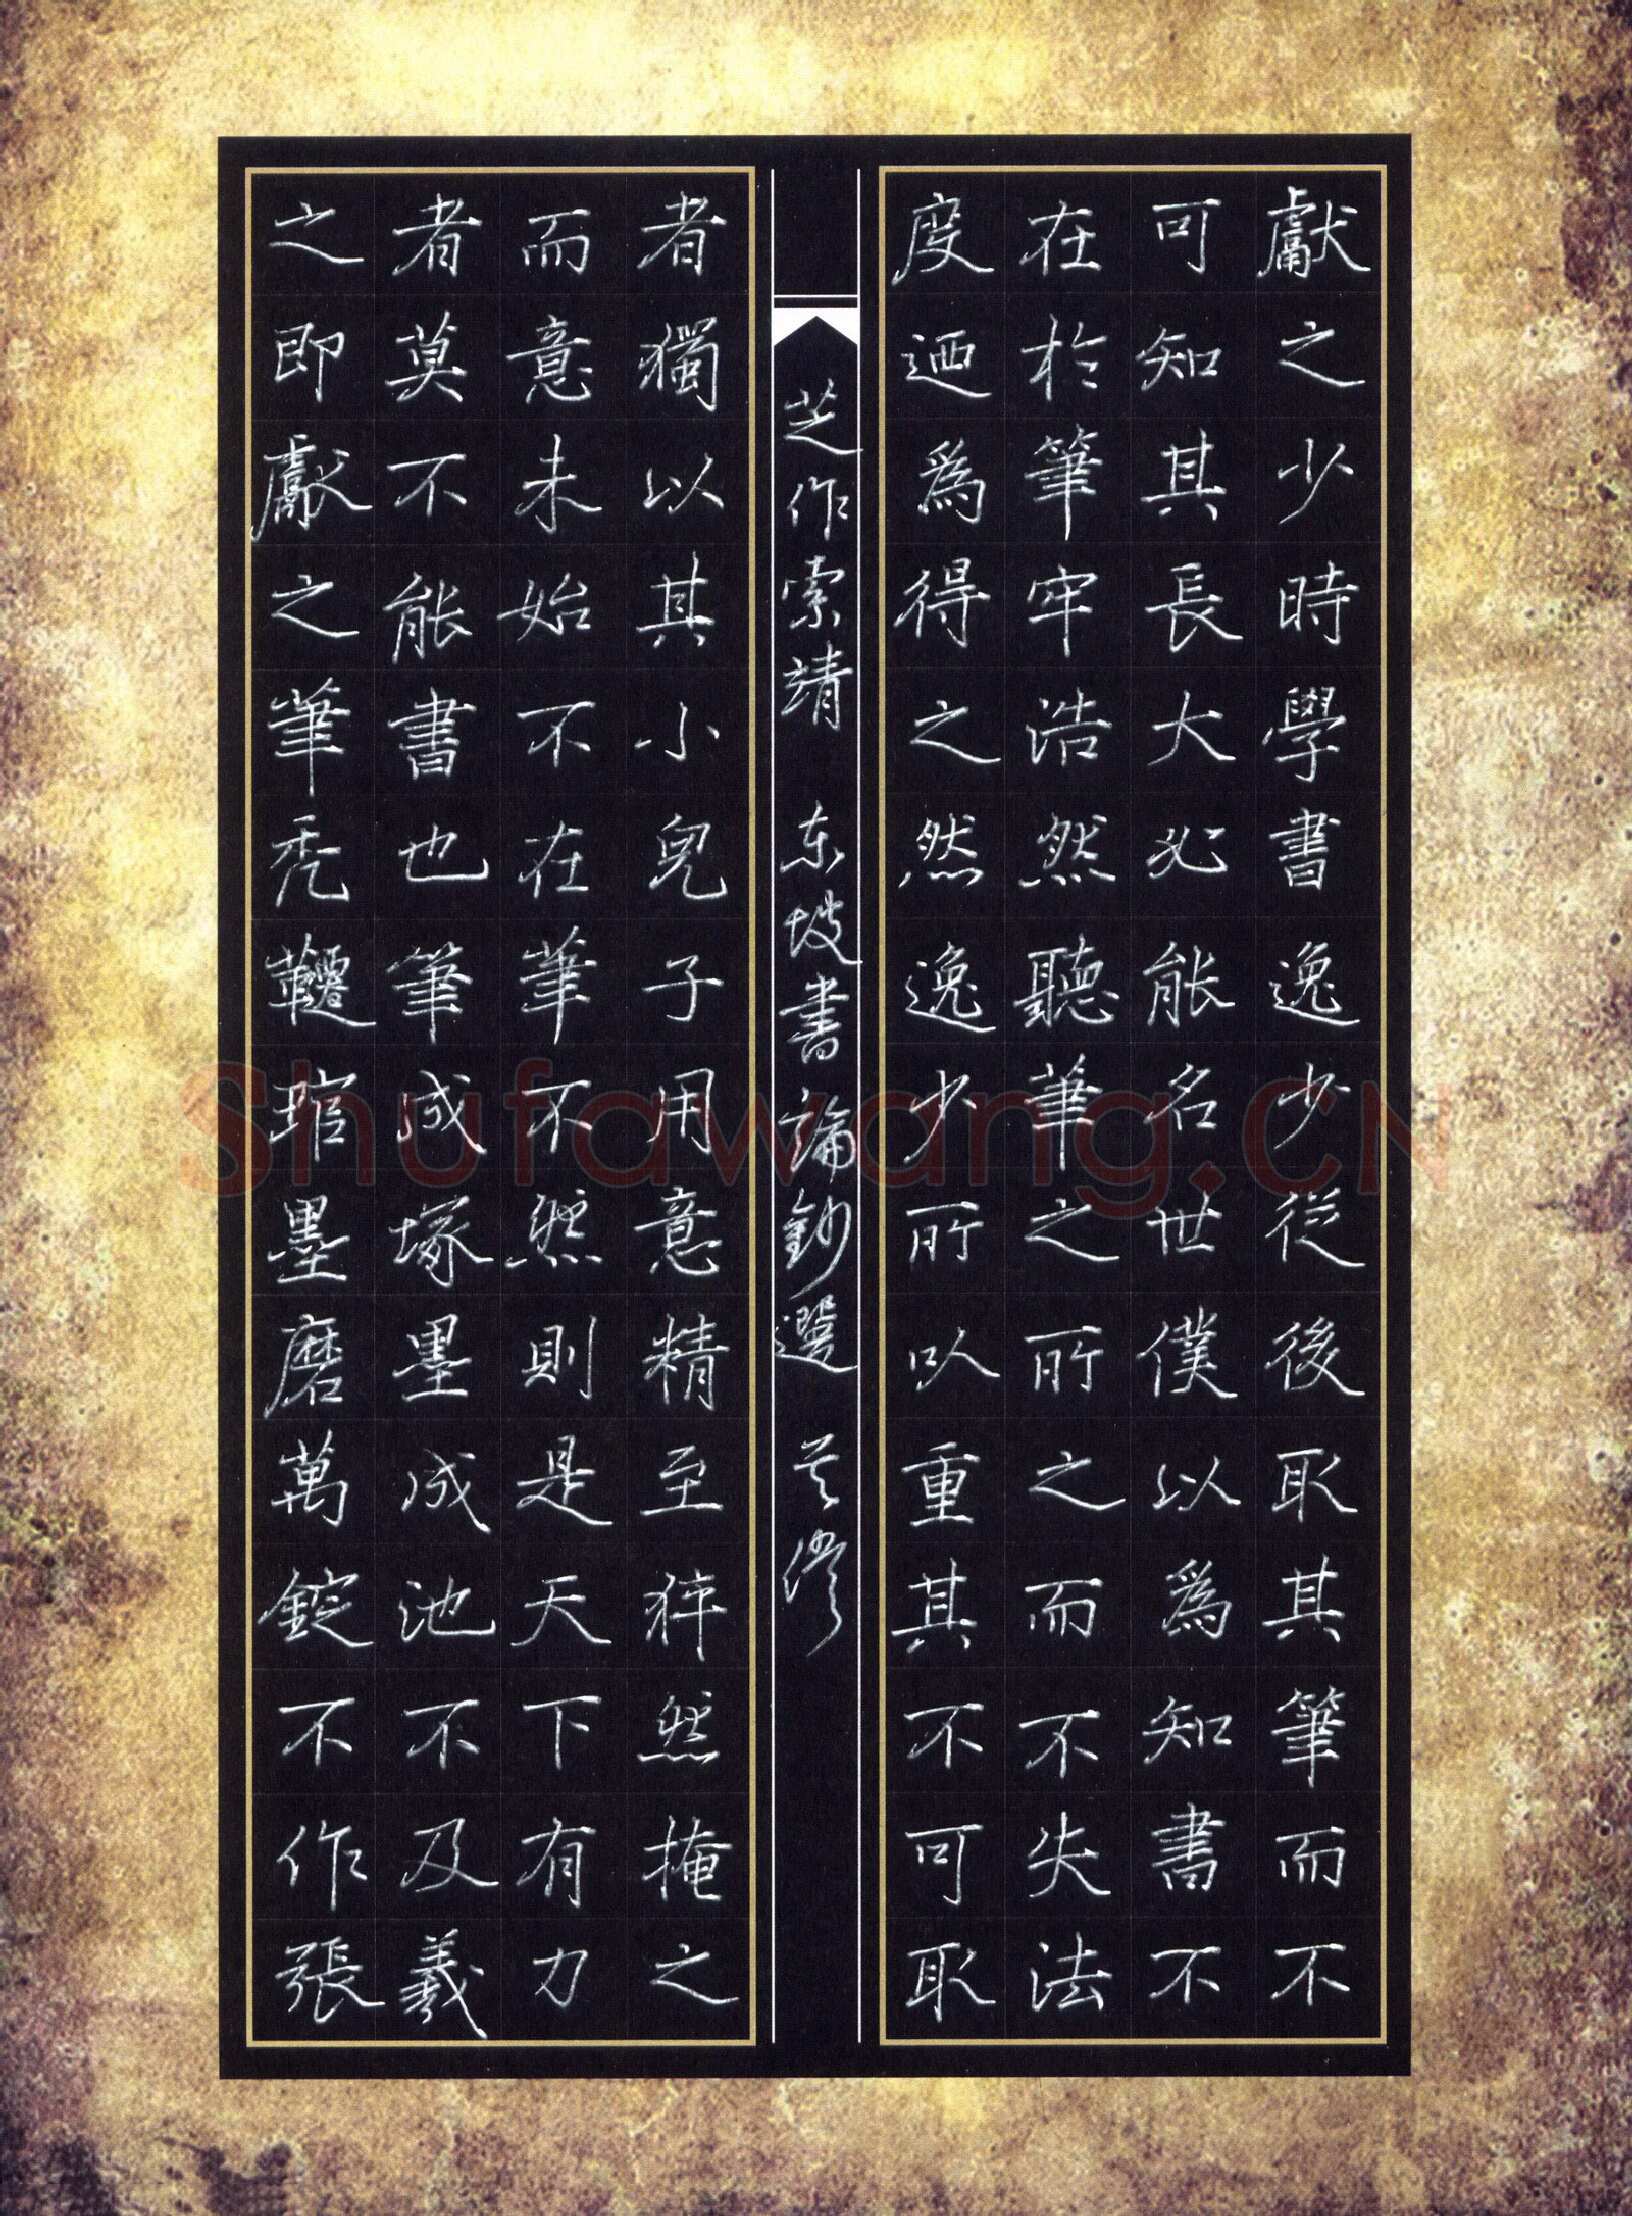 獻之少時學書逸少從後取其筆而不
可知其長大必能名世僕以爲知書不
在於筆牢浩然聽筆之所之而不失法
度迺爲得之然逸少所以重其不可取
者獨以其小兒子用意精至猝然掩之
而意未始不在筆不然則是天下有力
者莫不能書也筆成塚墨成池不及羲
之即獻之筆禿韆琯墨磨萬錠不作張
芝作索靖 东坡書論鈔選
Shufawang.CN